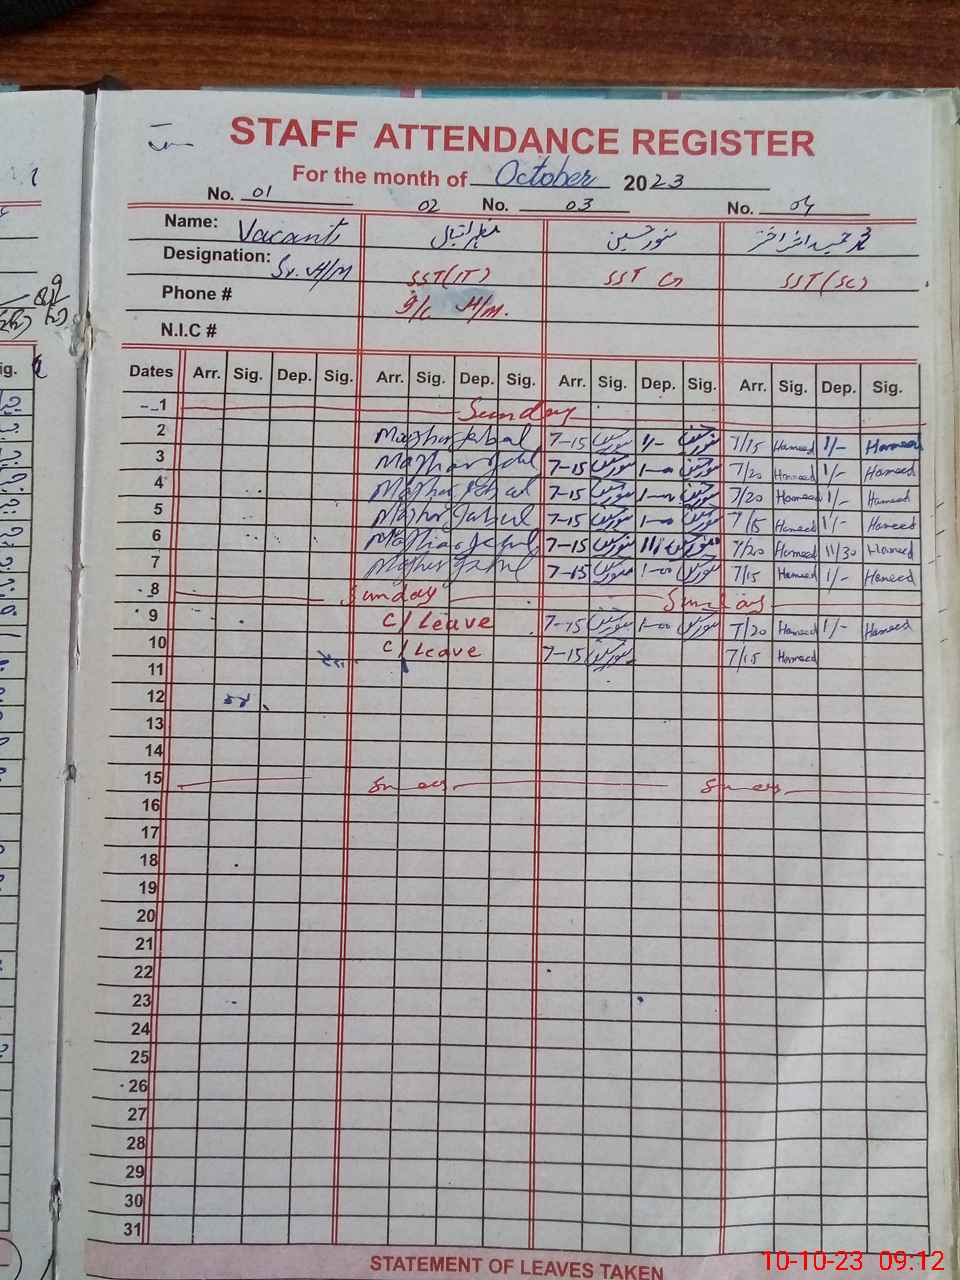 STAFF ATTENDANCE REGISTER
For the month of October 2023
No. 01 02 No. 03 No. 04
Name: Vacant مظہر اقبال منور حسین
Designation: Sr. H/M SST(IT) SST G SST(SC)
Phone # I/C H/M.
N.I.C #
Dates Arr. Sig. Dep. Sig. Arr. Sig. Dep. Sig. Arr. Sig. Dep. Sig. Arr. Sig. Dep. Sig.
1 Sunday
2 Mazhar Iqbal 7-15 منور حسین 1/- منور حسین 7/15 Hameed 1/- Hameed
3 Mazhar Iqbal 7-15 منور حسین 1-00 منور حسین 7/20 Hameed 1/- Hameed
4 Mazhar Iqbal 7-15 منور حسین 1-00 منور حسین 7/20 Hameed 1/- Hameed
5 Mazhar Iqbal 7-15 منور حسین 1-00 منور حسین 7/15 Hameed 1/- Hameed
6 Mazhar Iqbal 7-15 منور حسین منور حسین 7/20 Hameed 11/30 Hameed
7 Mazhar Iqbal 7-15 منور حسین 1-00 منور حسین 7/15 Hameed 1/- Hameed
8 Sunday Sunday
9 C/Leave 7-15 منور حسین 1-00 منور حسین 7/20 Hameed 1/- Hameed
10 C/Leave 7-15 منور حسین 7/15 Hameed
11
12
13
14
15 Sunday Sunday
16
17
18
19
20
21
22
23
24
25
26
27
28
29
30
31
STATEMENT OF LEAVES TAKEN
10-10-23 09:12